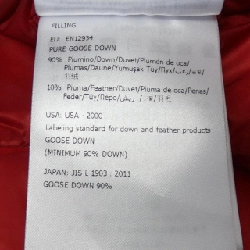 FILLING
EU: EN12934
PURE GOOSE DOWN
90% Piumino/Down/Duvet/Plumón de oca/
Plumas/Daune/Yumuşak Tüy/
10% Piuma/Feather/Duvet/Pluma de oca/Penas/
Feder/Tüy/Перо/
USA: USA - 2000
Labeling standard for down and feather products
GOOSE DOWN
(MINIMUM 80% DOWN)
JAPAN: JIS L 1903 : 2011
GOOSE DOWN 90%